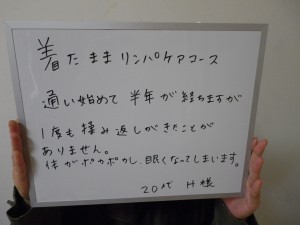 着たままリンパケアコース
通い始めて 半年が経ちますが
1度も揉み返しがきたことが
ありません。
体がポカポカし、眠くなってしまいます。
20代 H様